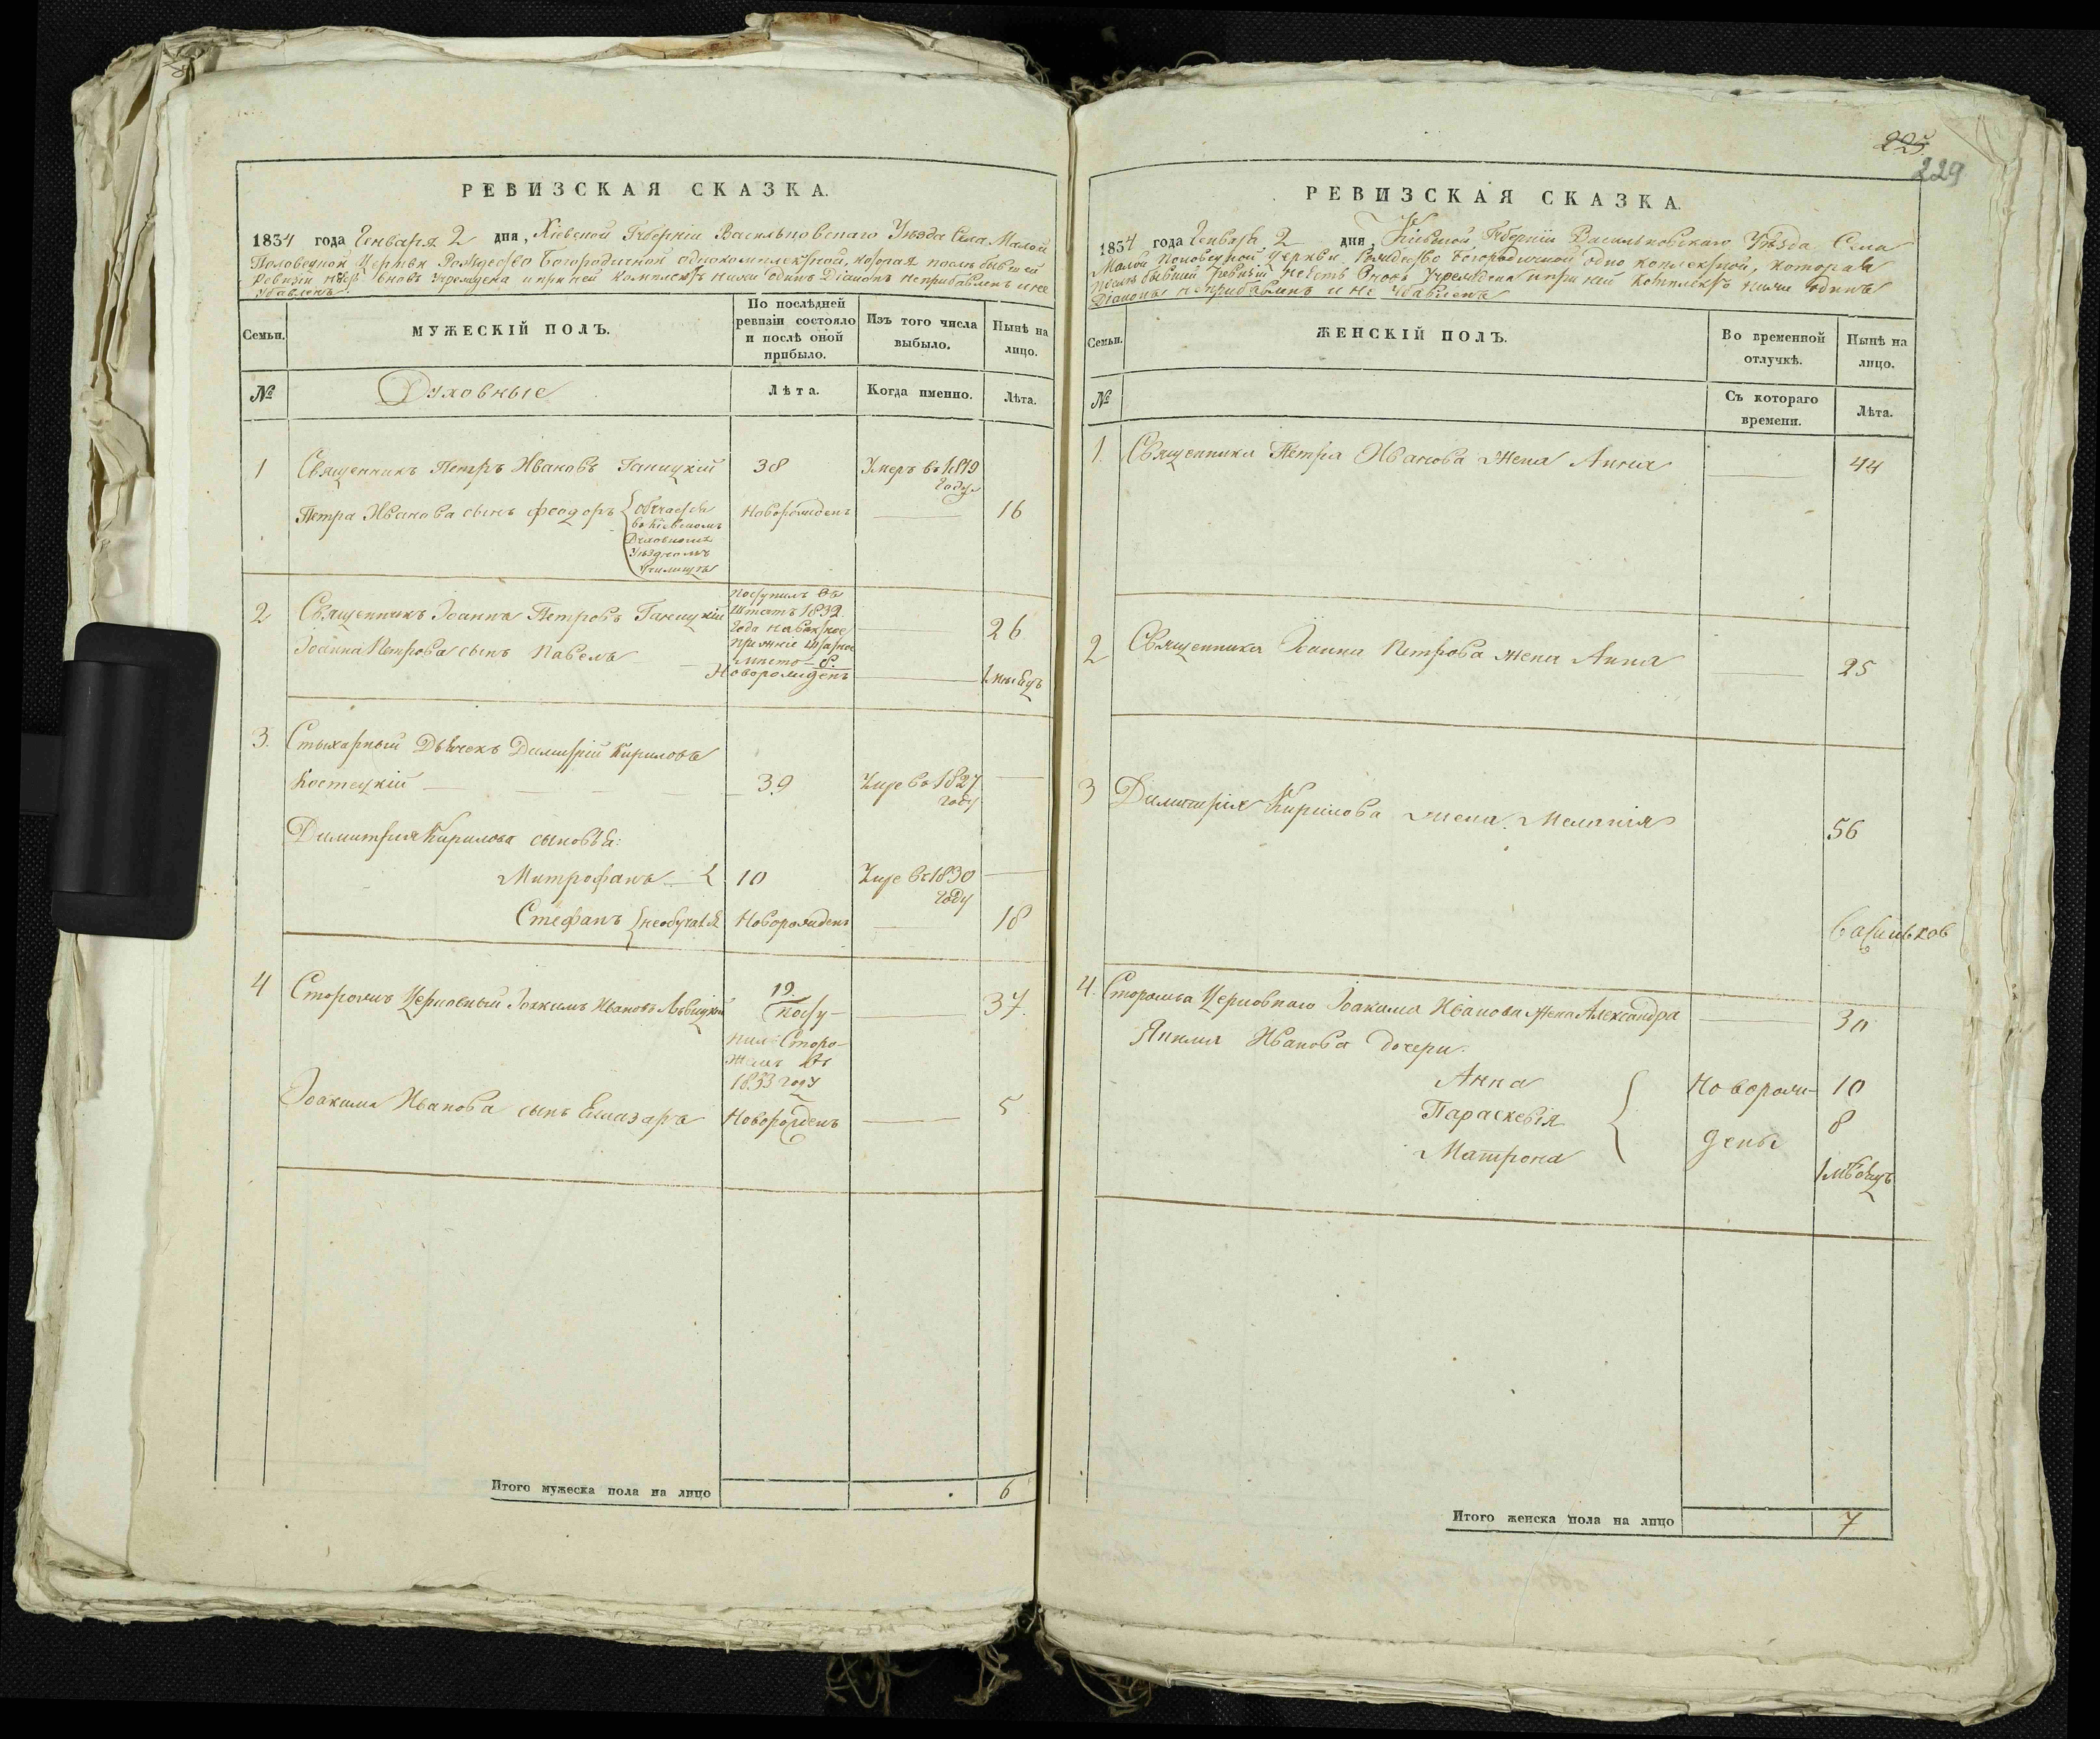 РЕВИЗСКАЯ СКАЗКА.
1834 года Генваря 2 дня, Кіевской Губерніи Васильковскаго Уѣзда Села Малой
Половецкой Церкви Рождество Богородичной однокомплектной, которая послѣ бывшей
Ревизіи вновь учреждена и при ней комплектъ ниже одинъ Діаконъ неприбавленъ и не
убавленъ.
Семьи.
МУЖЕСКІЙ ПОЛЪ.
По послѣдней ревизіи состояло и послѣ оной прибыло.
Изъ того числа выбыло.
Нынѣ на лицо.
№
Духовные
Лѣта.
Когда именно.
Лѣта.
1 Священникъ Петръ Ивановъ Ганицкій 38 Умеръ въ 1819
году
Петра Иванова сынъ Феодоръ обучается Новорожденъ 16
въ Кіевскомъ
Духовномъ
Уѣздномъ
Училищѣ
2 Священникъ Іоаннъ Петровъ Ганицкій 26
Поступилъ въ
штатъ 1832
года на
мѣсто
Іоанна Петрова сынъ Павелъ Новорожденъ 1 мѣсяцъ
3. Стихарный Дьячекъ Димитрій Кириловъ
Костецкій 39 Умре въ 1827
году
Димитрія Кирилова сыновья:
Митрофанъ 10 Умре въ 1830
году
Стефанъ необучался Новорожденъ 18
4 Сторожъ Церковный Іоакимъ Ивановъ Львицкій 19. 37.
посту-
пилъ Сторо-
жемъ въ
1833 году
Іоакима Иванова сынъ Елиазаръ Новорожденъ 5
Итого мужеска пола на лицо 6
225
229
РЕВИЗСКАЯ СКАЗКА.
1834 года Генваря 2 дня, Кіевской Губерніи Васильковскаго Уѣзда Села
Малой Половецкой Церкви Рождество Богородичной одно комплектной, которая
послѣ бывшей Ревизіи вновь учреждена и при ней комплектъ ниже одинъ
Діаконъ неприбавленъ и не убавленъ
Семьи.
ЖЕНСКІЙ ПОЛЪ.
Во временной отлучкѣ.
Нынѣ на лицо.
№
Съ котораго времени.
Лѣта.
1. Священника Петра Иванова жена Анна 44
2 Священника Іоанна Петрова жена Анна 25
3 Димитрія Кирилова жена Меланія 56
Васильков
4. Сторожа Церковнаго Іоакима Иванова жена Александра 30
Якима Иванова дочери:
Анна Новорож- 10
Параскевія 8
дены
Матрона 1 мѣсяцъ
Итого женска пола на лицо 7